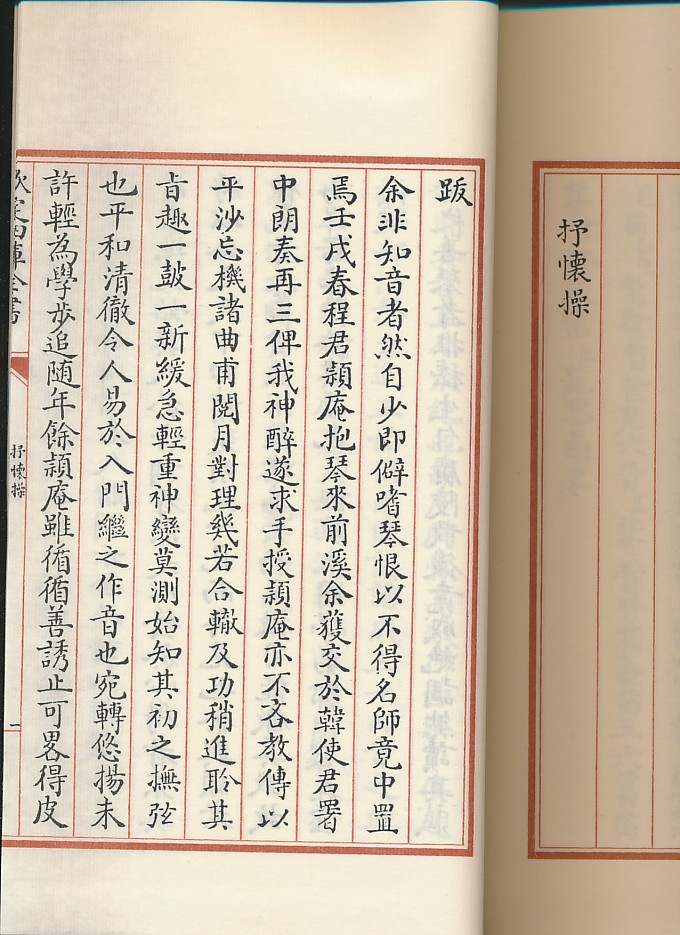 抒懷操
跋
余非知音者然自少即僻嗜琴恨以不得名師竟中置
焉壬戌春程君頴庵抱琴來前溪余獲交於韓使君署
中朗奏再三俾我神醉遂求手授頴庵亦不吝教傳以
平沙忘機諸曲甫閱月對理㡬若合轍及功稍進聆其
㫖趣一皷一新緩急輕重神變莫測始知其初之撫弦
也平和清徹令人易於入門繼之作音也宛轉悠揚未
許輕為學步追随年餘頴庵雖循循善誘止可畧得皮
欽定四庫全書
抒懷操
一